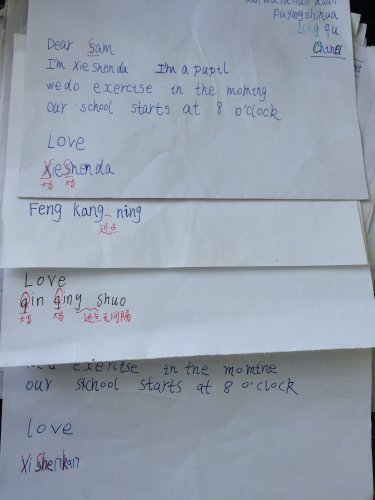 Puyangshihua
Long qu
China
Dear Sam
I'm Xie shenda I'm a pupil
we do exercise in the moming
our school starts at 8 o'clock
Love
Xieshenda
大写 大写
Feng Kang ning
近点
Love
qin qing shuo
大写 大写 近点无间隔
exercise in the momine
our school starts at 8 o'clock
love
Xi Shenkan